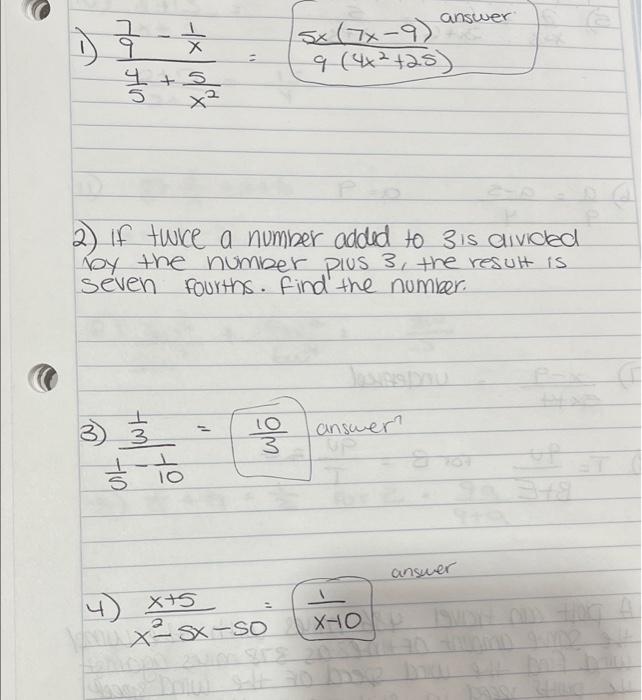 1) (7/9 - 1/x) / (4/5 + 5/x²) = 5x(7x-9) / 9(4x²+25) answer
2) If twice a number added to 3 is divided
by the number plus 3, the result is
seven fourths. Find the number.
3) (1/3) / (1/5 - 1/10) = 10/3 answer
4) x+5 / x²-5x-50 = 1 / x-10 answer